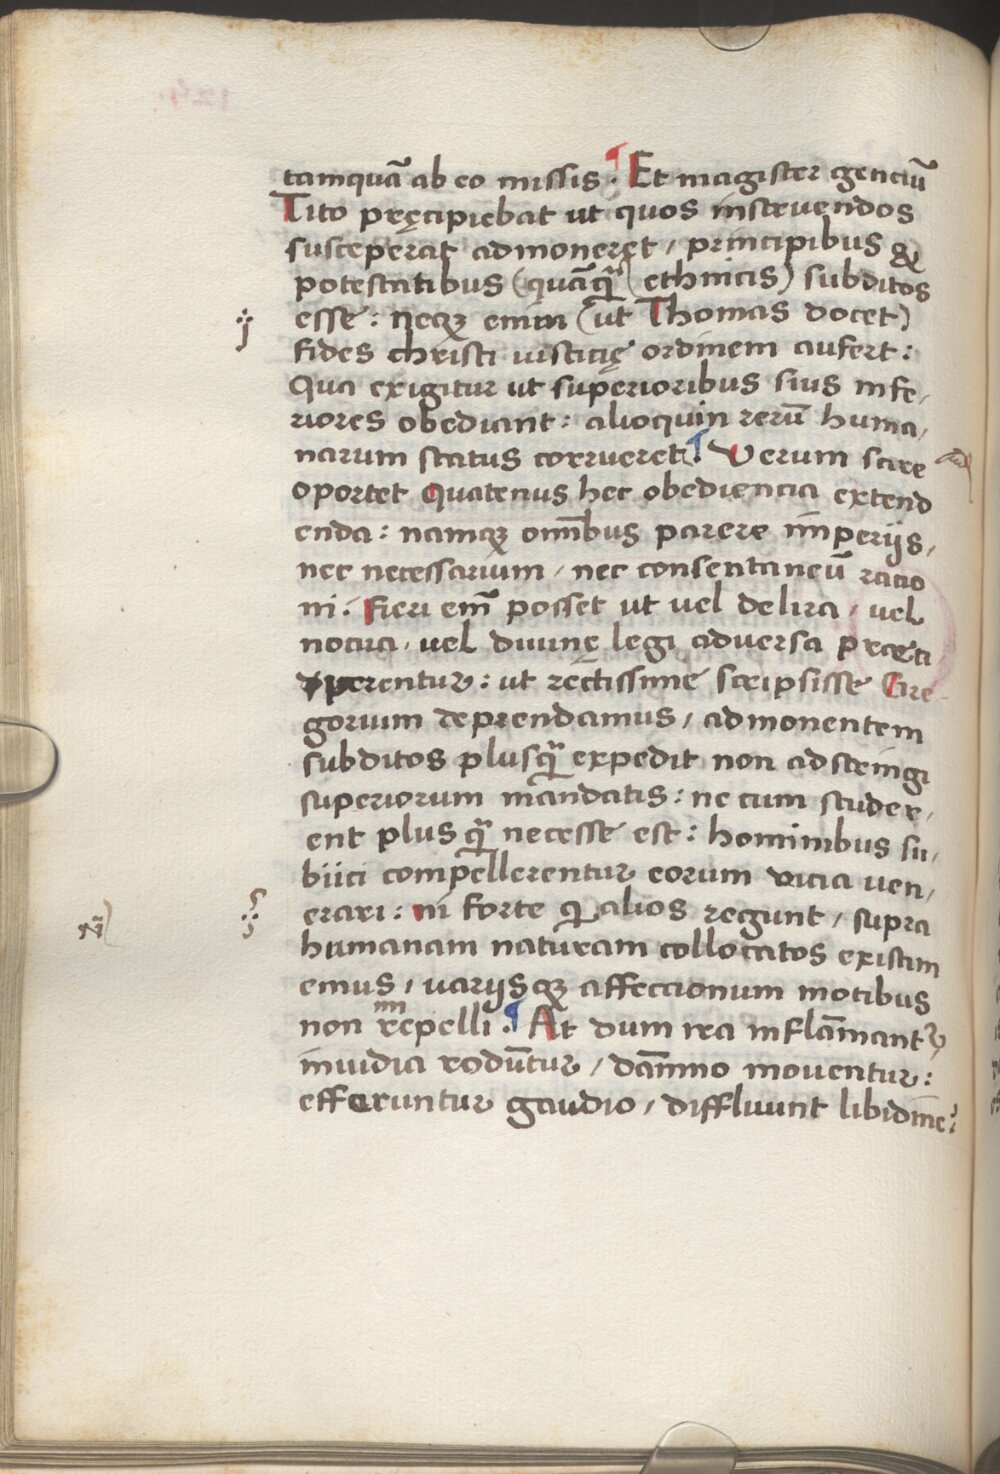 tamquā ab eo missis. ¶ Et magister genciū
Tito pręcipiebat ut quos instruendos
susceperat admoneret, principibus &
potestatibus (quāqꝫ ethnicis) subditos
esse: neqꝫ enim (ut Thomas docet)
fides christi iusticię ordinem aufert:
Qua exigitur ut superioribus suis infe,
riores obediant: alioquin rerū huma,
narum status corrueret ¶ Verum scire
oportet Quatenus hec obediencia extend
enda: namqꝫ om̄ibus parere imperijs,
nec necessarium, nec consentaneū racio
ni. Fieri em̄ posset ut vel delira, vel
nociva, vel divinę legi adversa praeci
perentur: ut rectissime scripsisse Gre
gorium deprendamus, admonentem
subditos plusꝙ̄ expedit non adstringi
superiorum mandatis: ne cum studer,
ent plus ꝙ̄ necesse est: hominibus su,
biici compellerentur eorum vicia ven,
erari: ni forte qui alios regunt, supra
humanam naturam collocatos existim
emus, varijsqꝫ affeccionum motibus
non impelli. ¶ At dum ira inflāmant᷑
invidia rodūtur, dāmno moventur:
efferuntur gaudio, diffluunt libidine: